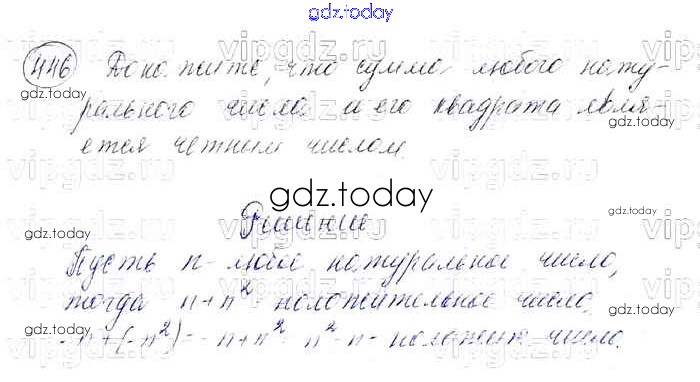 gdz.today
446 Докажите, что сумма любого нату-
рального числа и его квадрата явля-
ется четным числом.
gdz.today
Решение
Пусть n - любое натуральное число,
тогда n+n² - положительное число.
-n+(-n²)= -n+n² n²-n - положит число.